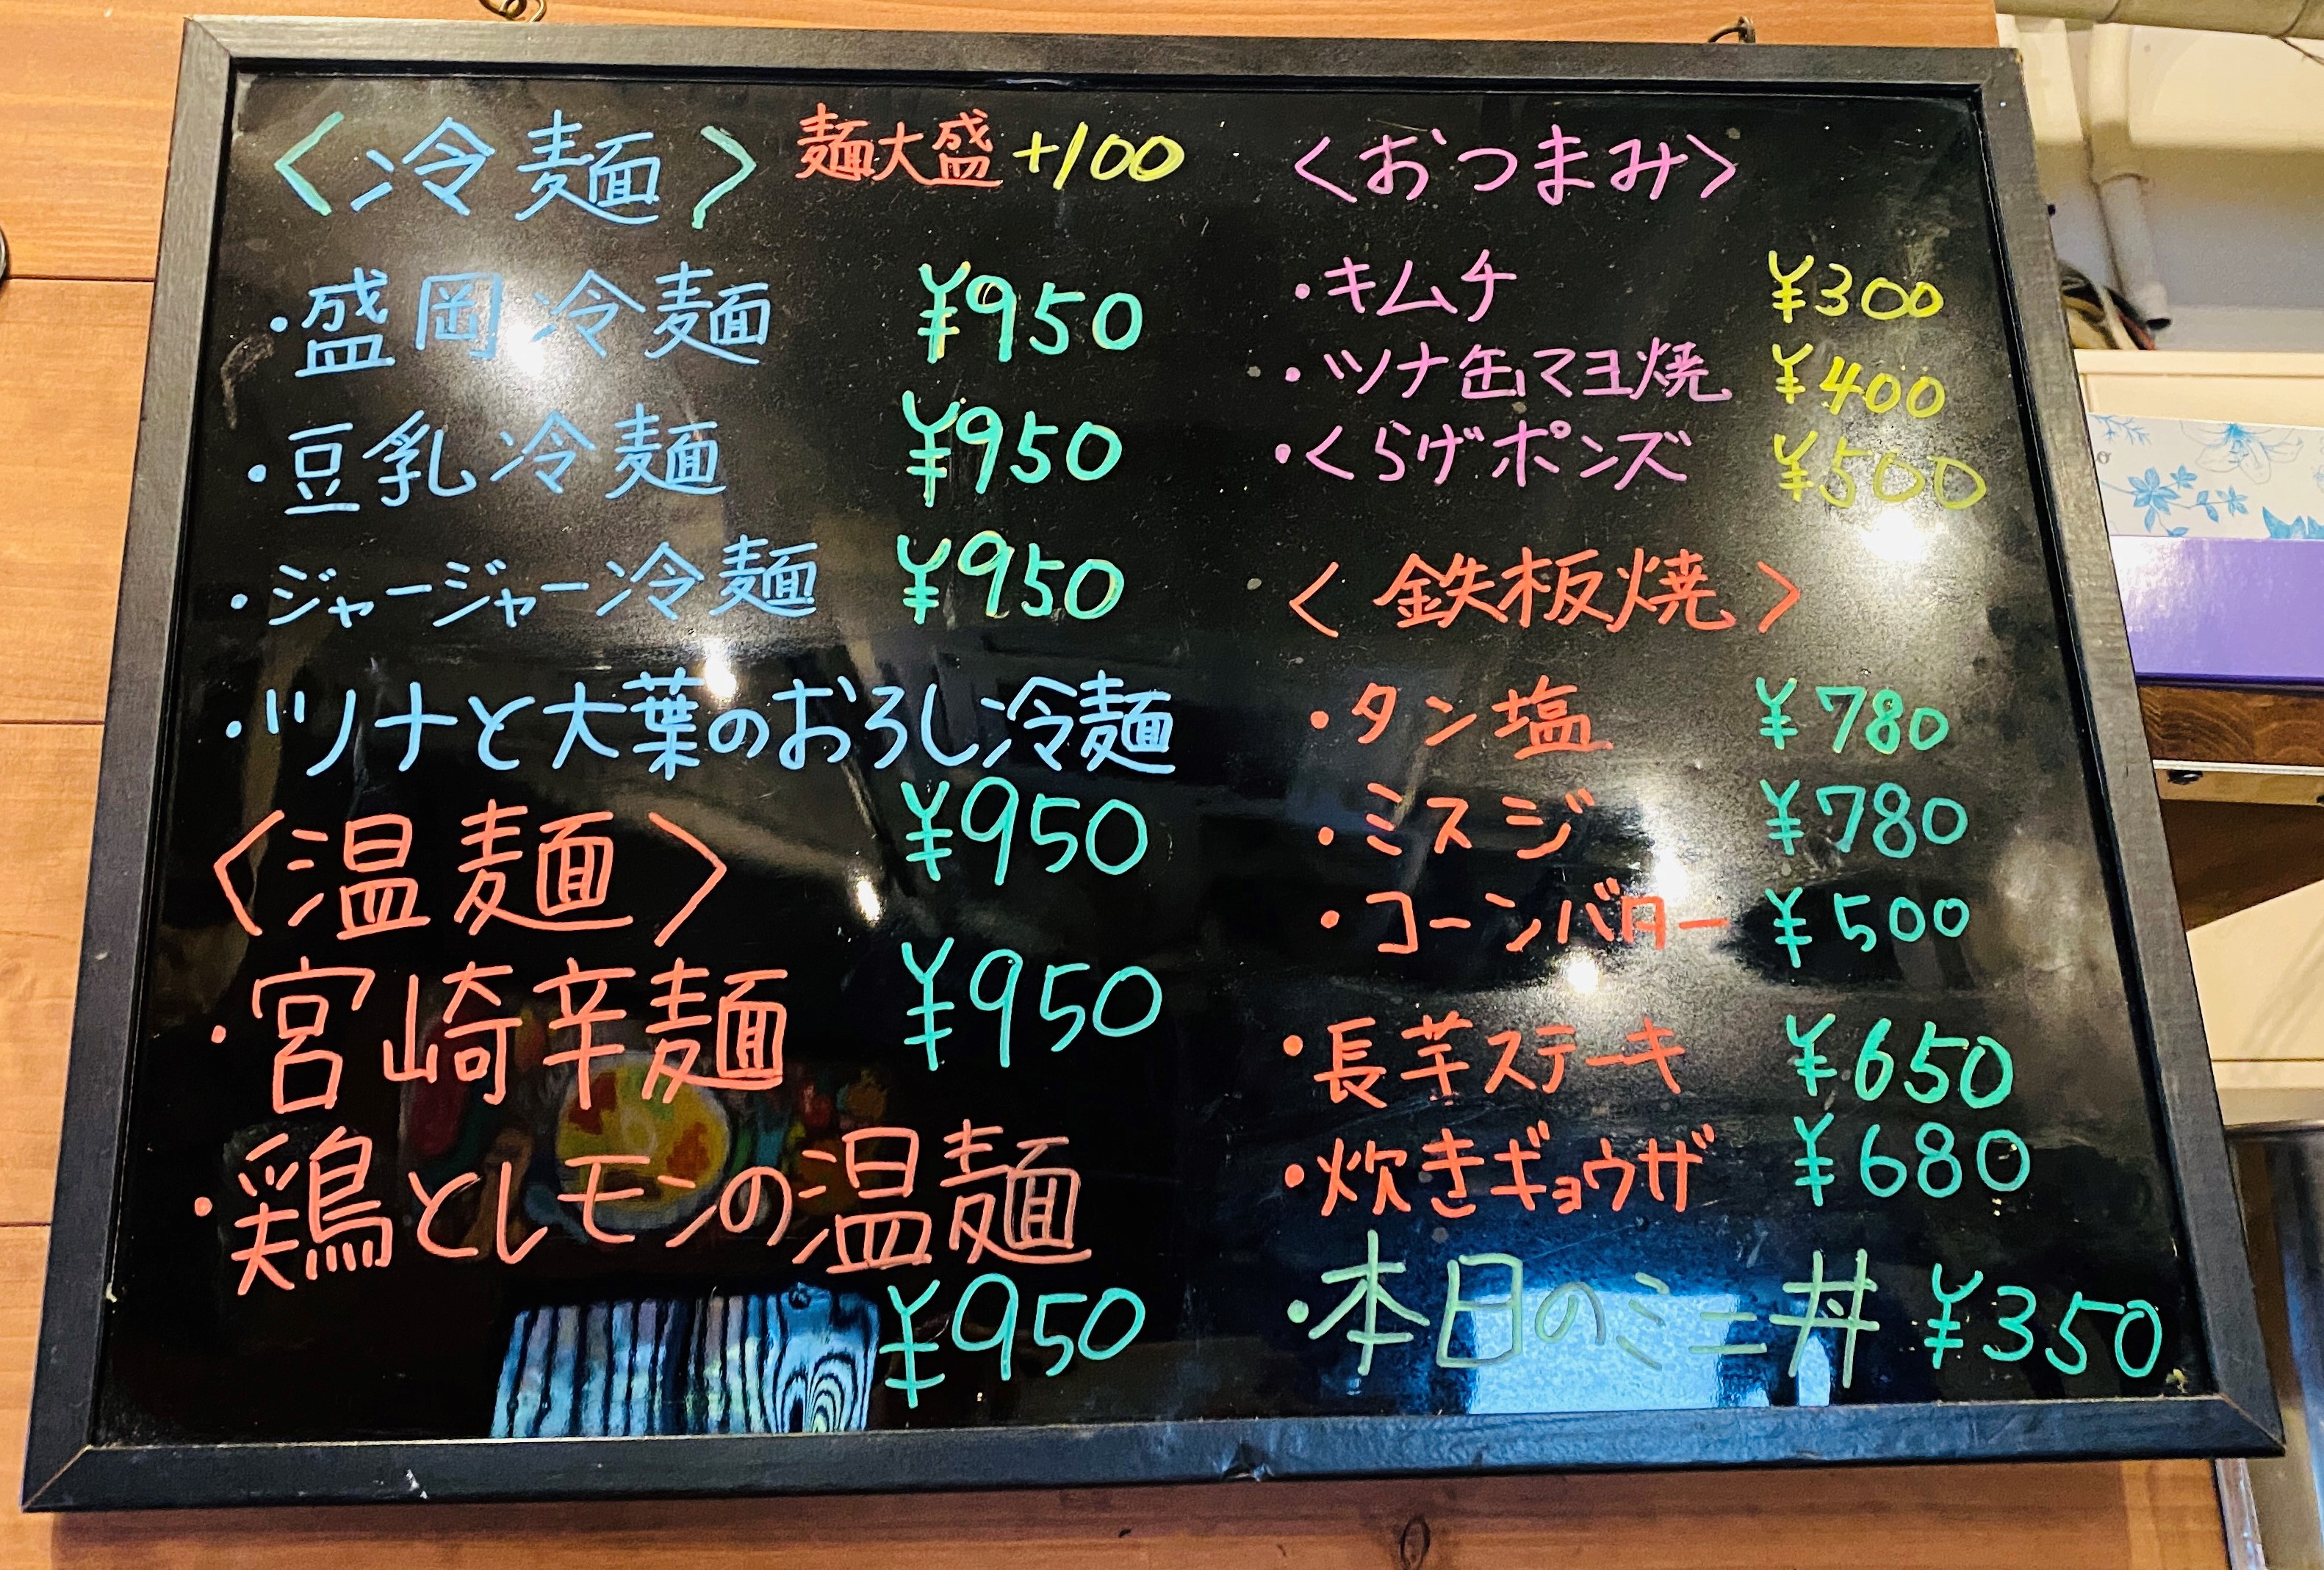 〈冷麺〉 麺大盛+100
・盛岡冷麺 ¥950
・豆乳冷麺 ¥950
・ジャージャー冷麺 ¥950
・ツナと大葉のおろし冷麺
¥950
〈温麺〉
・宮崎辛麺 ¥950
・鶏とレモンの温麺
¥950
〈おつまみ〉
・キムチ ¥300
・ツナ缶マヨ焼 ¥400
・くらげポンズ ¥500
〈鉄板焼〉
・タン塩 ¥780
・ミスジ ¥780
・コーンバター ¥500
・長芋ステーキ ¥650
・炊きギョウザ ¥680
・本日のミニ丼 ¥350